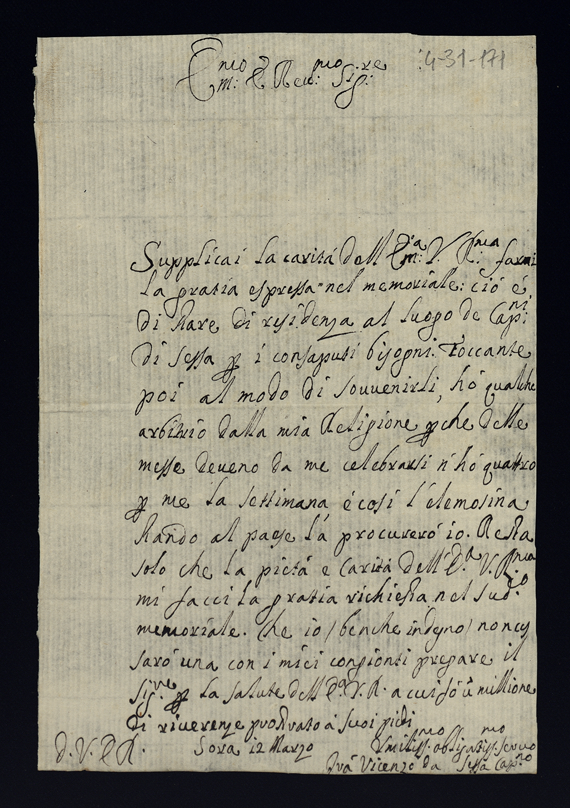 4-31-171
Em:mo e Rev:mo Sig:re
Supplicai la caritá dell'Em:a V. R:ma farmi
la gratia espressa nel memoriale: ció é
di stare di residenza al luogo de Capni:
di Sessa p i consaputi bisogni. Toccante
poi al modo di souvenirli, hó qualche
arbitrio dalla mia Religione pche delle
messe deveno da me celebrarsi n'hó quattro
p me la settimana é cosi l'elemosina
stando al paese la procureró io. Resta
solo che la pietá e caritá dell'E.a V. R.ma
mi facci la gratia richiesta nel sud.o
memoriale. Che io (benche indegno) non
saró una con i miei congionti pregare il
Sig.re p la salute dell'E.a V. R. a cui fó ú millione
di riverenze prostrato á suoi piedi
D. V. E R.
Sora 12 Marzo
Humiliss.mo obligatiss.mo servo
Frá Vicenzo da Sessa Capno